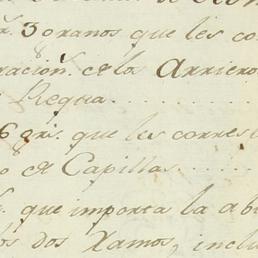 3 granos que les co
ración de la Arriero
Regua.
6 gr.s que les corres
Capillas.
que importa la ab
los dos Xamos, inclu